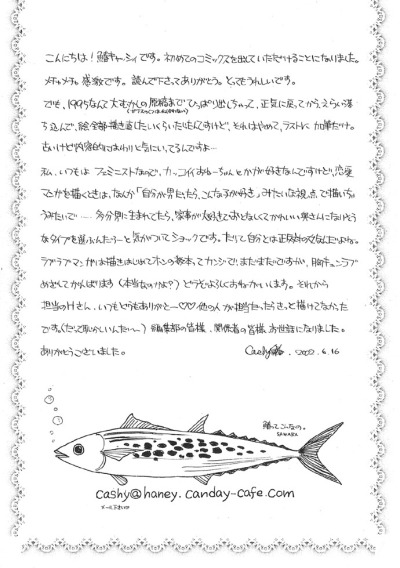 こんにちは！鰆キャーシィです。初めてのコミックスを出していただけることになりました。
メチャメチャ感激です。読んで下さってありがとう。とってもうれしいです。
でも、1995なんて大むかしの原稿までひっぱり出しちゃって、正気に戻ってからえらい落
ち込んで、絵全部描き直したいくらいだったんですけど、それはやめて、ラストに加筆だけ。
古いけど内容的にはわりと気にいってるんですよ…
私、いつもは フェミニストなので、カッコイイおねーちゃんとかが好きなんですけど、恋愛
マンガを描くときは、なんか「自分が男だったら、こんな子が好き」みたいな視点で描いちゃ
うみたいで……多分男に生まれてたら、家事が大好きでおとなしくてかわいい奥さんになりそう
なタイプを選ぶんだろーなと気がついてショックです。だって自分とは正反対の女なんだよね。
ラブラブマンガは描きはじめてホンの数本ってカンジで、まだまだですが、胸キュンラブ
めざしてがんばります（本当なのかよ？）どうぞよろしくおねがいします。それから
担当のHさん、いつもどうもありがとー♡♡他の人が担当だったらきっと描けてなかった
です（だって恥かしいんだい〜）編集部の皆様、関係者の皆様、お世話になりました。
ありがとうございました。
Cashy鰆. 2002.6.16
鰆ってこんなの。
SAWARA
cashy@haney.canday-cafe.com